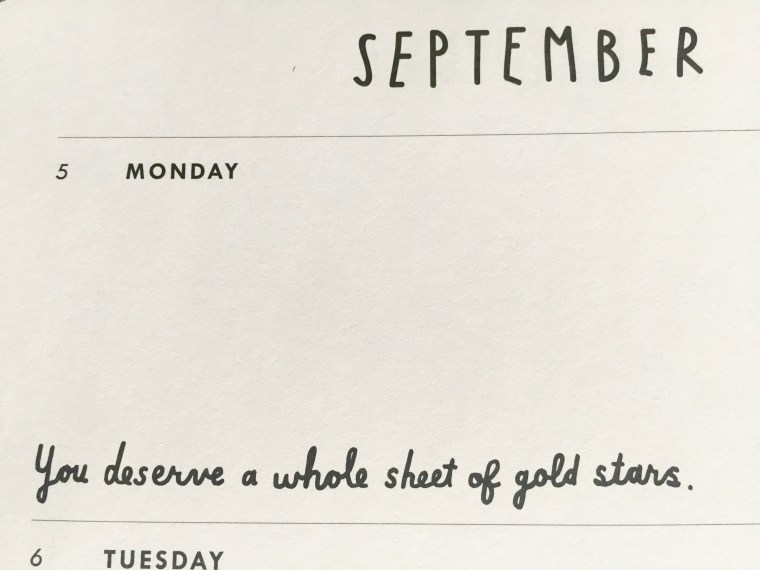 SEPTEMBER
5 MONDAY
You deserve a whole sheet of gold stars.
6 TUESDAY